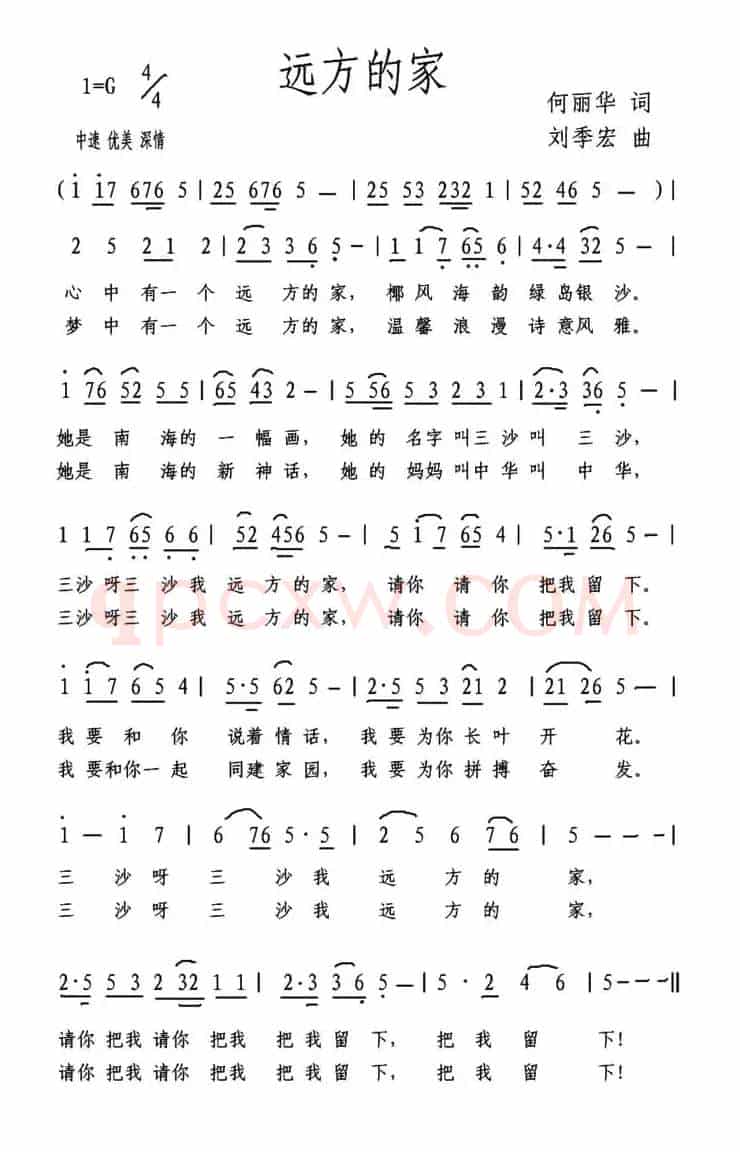 远方的家
1=G 4/4
何丽华 词
中速 优美 深情
刘季宏 曲
(i i7 676 5 | 25 676 5 — | 25 53 232 1 | 52 46 5 — )|
2 5 21 2 | 2 3 3 6 5 — | 1 1 7 65 6 | 4·4 32 5 — |
心 中 有一 个 远 方的 家, 椰 风 海 韵 绿 岛银 沙。
梦 中 有一 个 远 方的 家, 温 馨 浪 漫 诗 意风 雅。
i 76 52 5 5 | 65 43 2 — | 5 56 5 3 2 3 1 | 2·3 36 5 — |
她是 南 海的 一 幅 画, 她 的 名字 叫三 沙叫 三 沙,
她是 南 海的 新 神 话, 她 的 妈妈 叫中 华叫 中 华,
1 1 7 65 6 6 | 52 456 5 — | 5 i 7 65 4 | 5·1 26 5 — |
三沙 呀三 沙我 远 方的 家, 请你 请 你 把我 留 下。
三沙 呀三 沙我 远 方的 家, 请你 请 你 把我 留 下。
qpcxw.com
i i 7 6 5 4 | 5·5 62 5 — | 2·5 53 21 2 | 21 26 5 — |
我 要 和 你 说着 情 话, 我 要 为你 长 叶 开 花。
我 要和你一 起 同建 家 园, 我 要 为你 拼 搏 奋 发。
i — i 7 | 6 76 5·5 | 2 5 6 76 | 5 — — — |
三 沙 呀 三 沙 我 远 方 的 家,
三 沙 呀 三 沙 我 远 方 的 家,
2·5 5 3 2 32 1 1 | 2·3 3 6 5 — | 5 · 2 4 6 | 5 — — — ‖
请你 把我 请你 把我 把我 留 下, 把 我 留 下!
请你 把我 请你 把我 把我 留 下, 把 我 留 下!